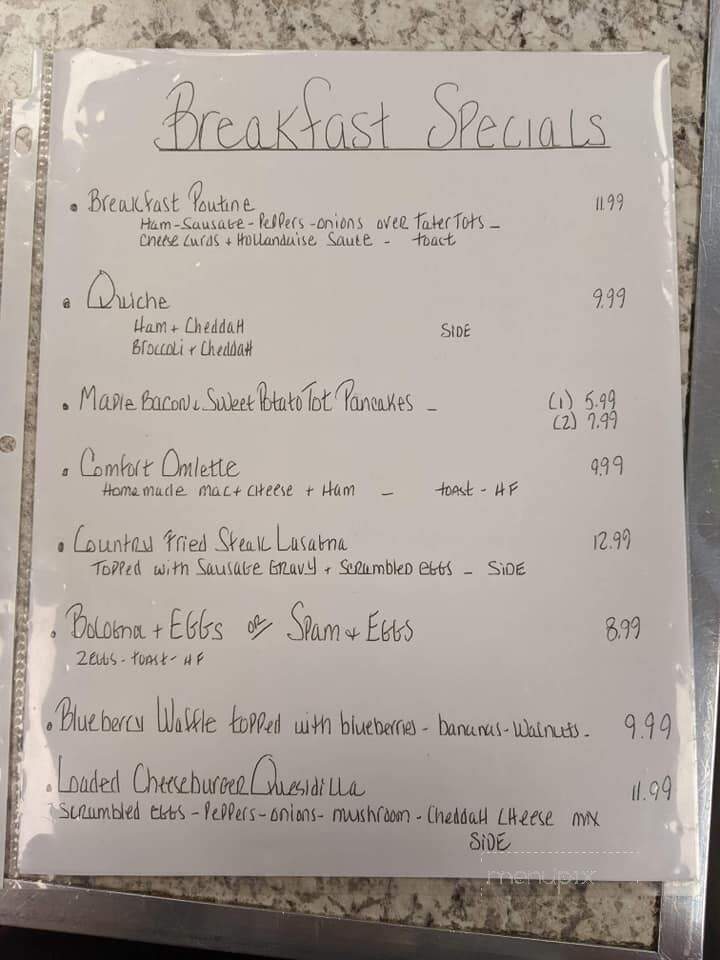 Breakfast Specials
• Breakfast Poutine 11.99
Ham-Sausage-Peppers-onions over TaterTots -
Cheese Curds + Hollandaise Saute - toast
• Quiche 9.99
Ham + Cheddar
SIDE
Broccoli + Cheddar
• Maple Bacon & Sweet Potato Tot Pancakes - (1) 5.99
(2) 7.99
• Comfort Omlette 9.99
Homemade mac + cheese + Ham - toast - HF
• Country Fried Steak Lasagna 12.99
Topped with Sausage Gravy + Scrambled eggs - SIDE
• Bologna + EGGs or Spam + EGGs 8.99
2 eggs - toast - HF
• Blueberry Waffle topped with blueberries - bananas - Walnuts - 9.99
• Loaded Cheeseburger Quesidilla 11.99
Scrambled eggs - Peppers - onions - mushroom - Cheddar Cheese mix
SIDE
menupix